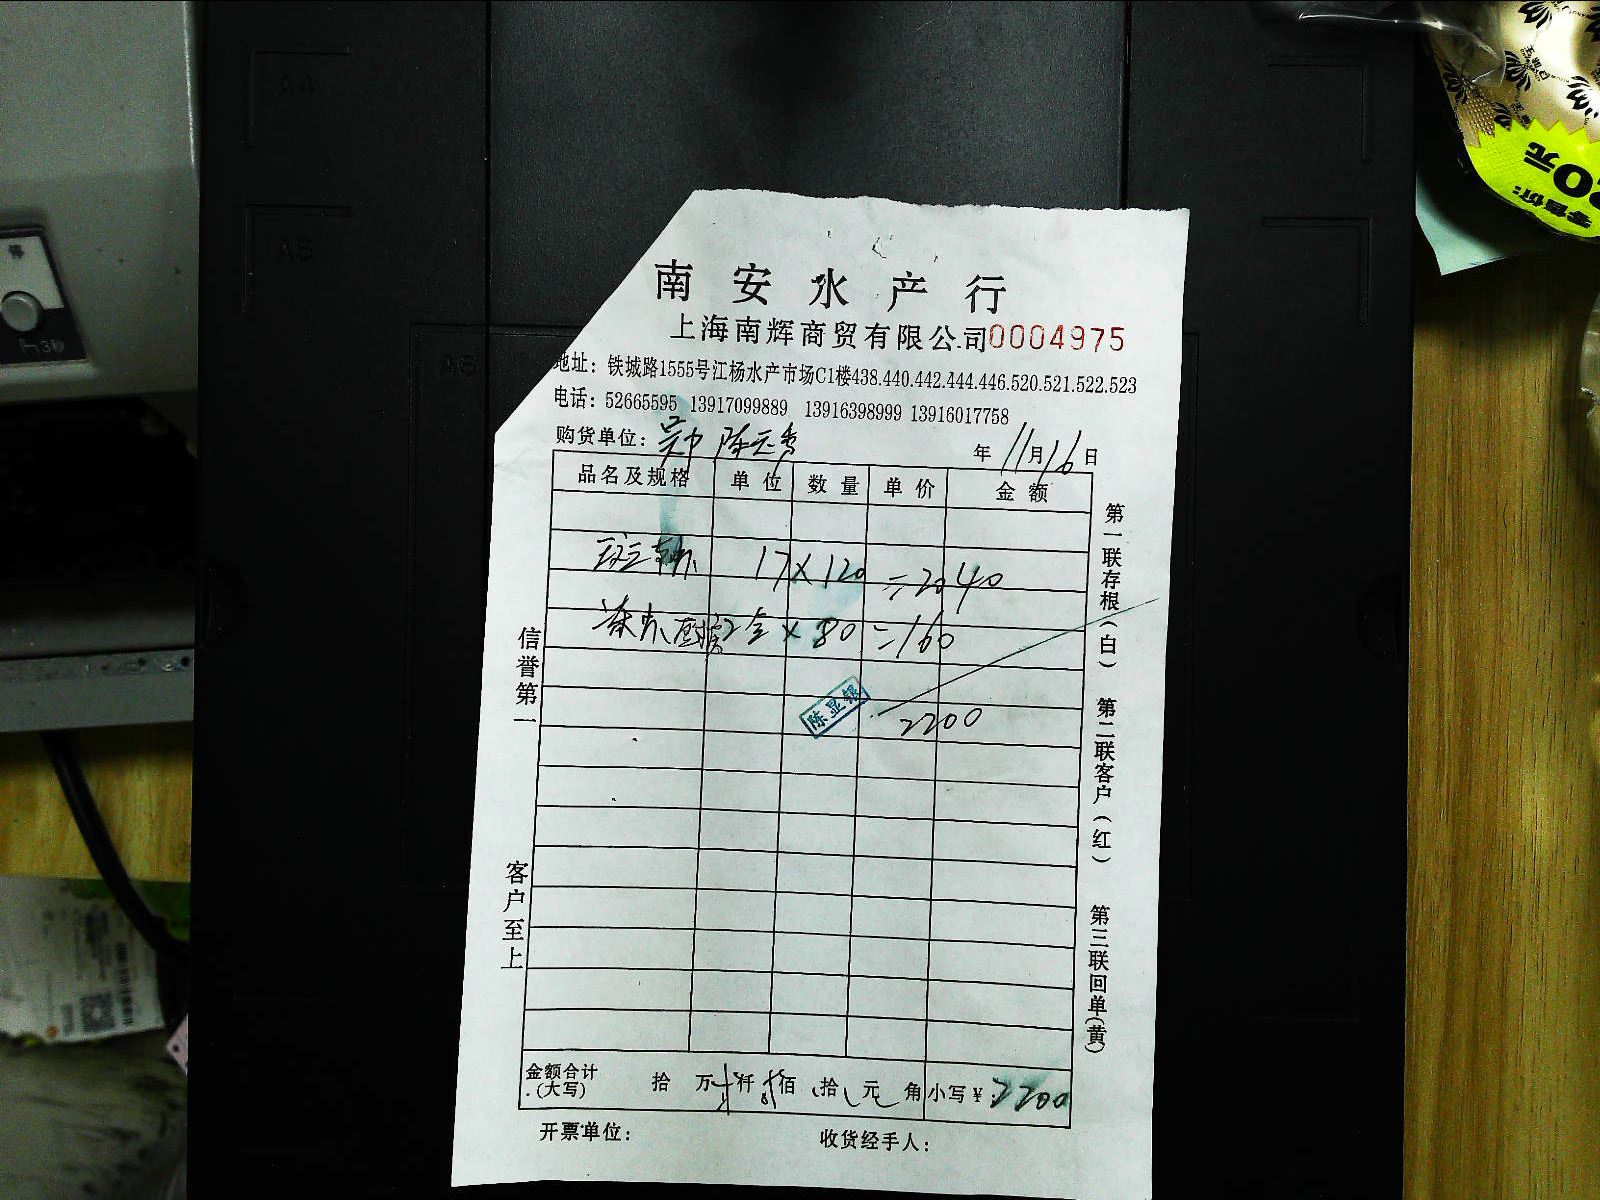 南安水产行
上海南辉商贸有限公司0004975
地址：铁城路1555号江杨水产市场C1楼438.440.442.444.446.520.521.522.523
电话：52665595 13917099889 13916398999 13916017758
购货单位： 年11月16日
品名及规格 单位 数量 单价 金额
17×120=2040
×80=160
陈显银
2200
金额合计(大写) 拾 万 仟 佰 拾 元 角 小写￥2200
开票单位： 收货经手人：
信誉第一
客户至上
第一联存根(白)
第二联客户(红)
第三联回单(黄)
A4
A5
A5
零售价：
元